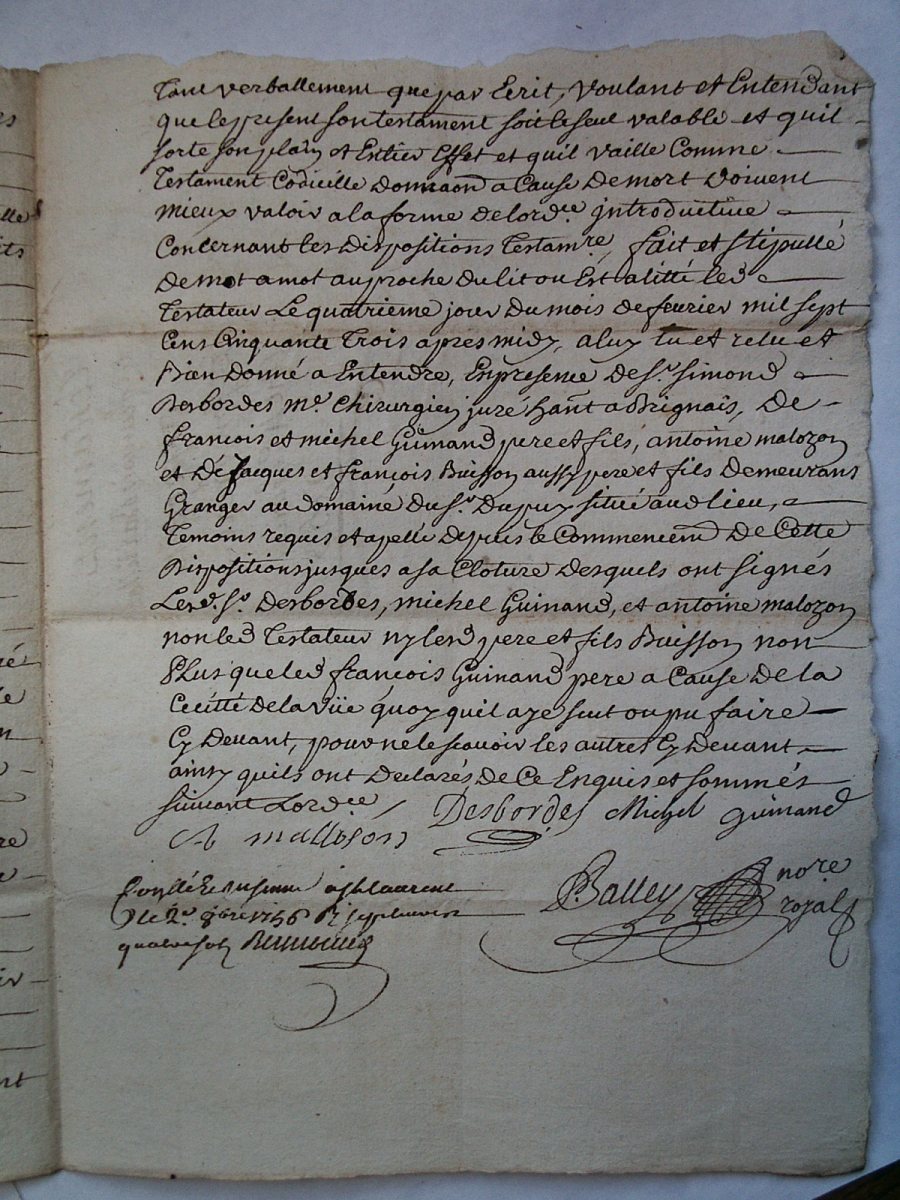 Tant verballement que par Ecrit, Voulant et Entendant
que le present son testament soit le seul valable et quil
sorte son plain et Entier Effet et quil vaille Comme
Testament Codicille Donnaon a Cause De mort Doivent
mieux valoir a la forme De lordce introductive
Concernant les Dispositions Testamre, fait et stipullé
De mot a mot au proche Du lit ou Est alitté led
Testateur Le quatrieme jour Du mois de fevrier mil sept
Cens Cinquante Trois apres midy, a luy lu et relu et
Bien Donné a Entendre, En presence De Sr simond
Desbordes me Chirurgien juré hant a Brignais, De
françois et michel Guinand pere et fils, antoine malozon
et De Jacques et françois Buisson aussy pere et fils Demeurans
Granger au Domainé Du Sr Dupuy situé aud lieu,
Temoins requis et apellé Depuis le Commencemt De Cette
Dispositions jusques a sa Cloture Desquels ont signés
Led. Sr Desbordes, michel Guinand, et antoine malozon
non led Testateur ny lesd pere et fils Buisson non
Plus que led françois Guinand pere a Cause De la
Cecitté De la vüe quoy quil aye scut ou pu faire
Cy Devant, pour ne le scavoir les autres Cy Devant
ainsy quils ont Declarés De Ce Enquis et sommés
suivant Lordce
Desbordes Michel guinand
A malloson
Balley nore
royal
st laurent
le 2e 8bre 1756
quatre sols